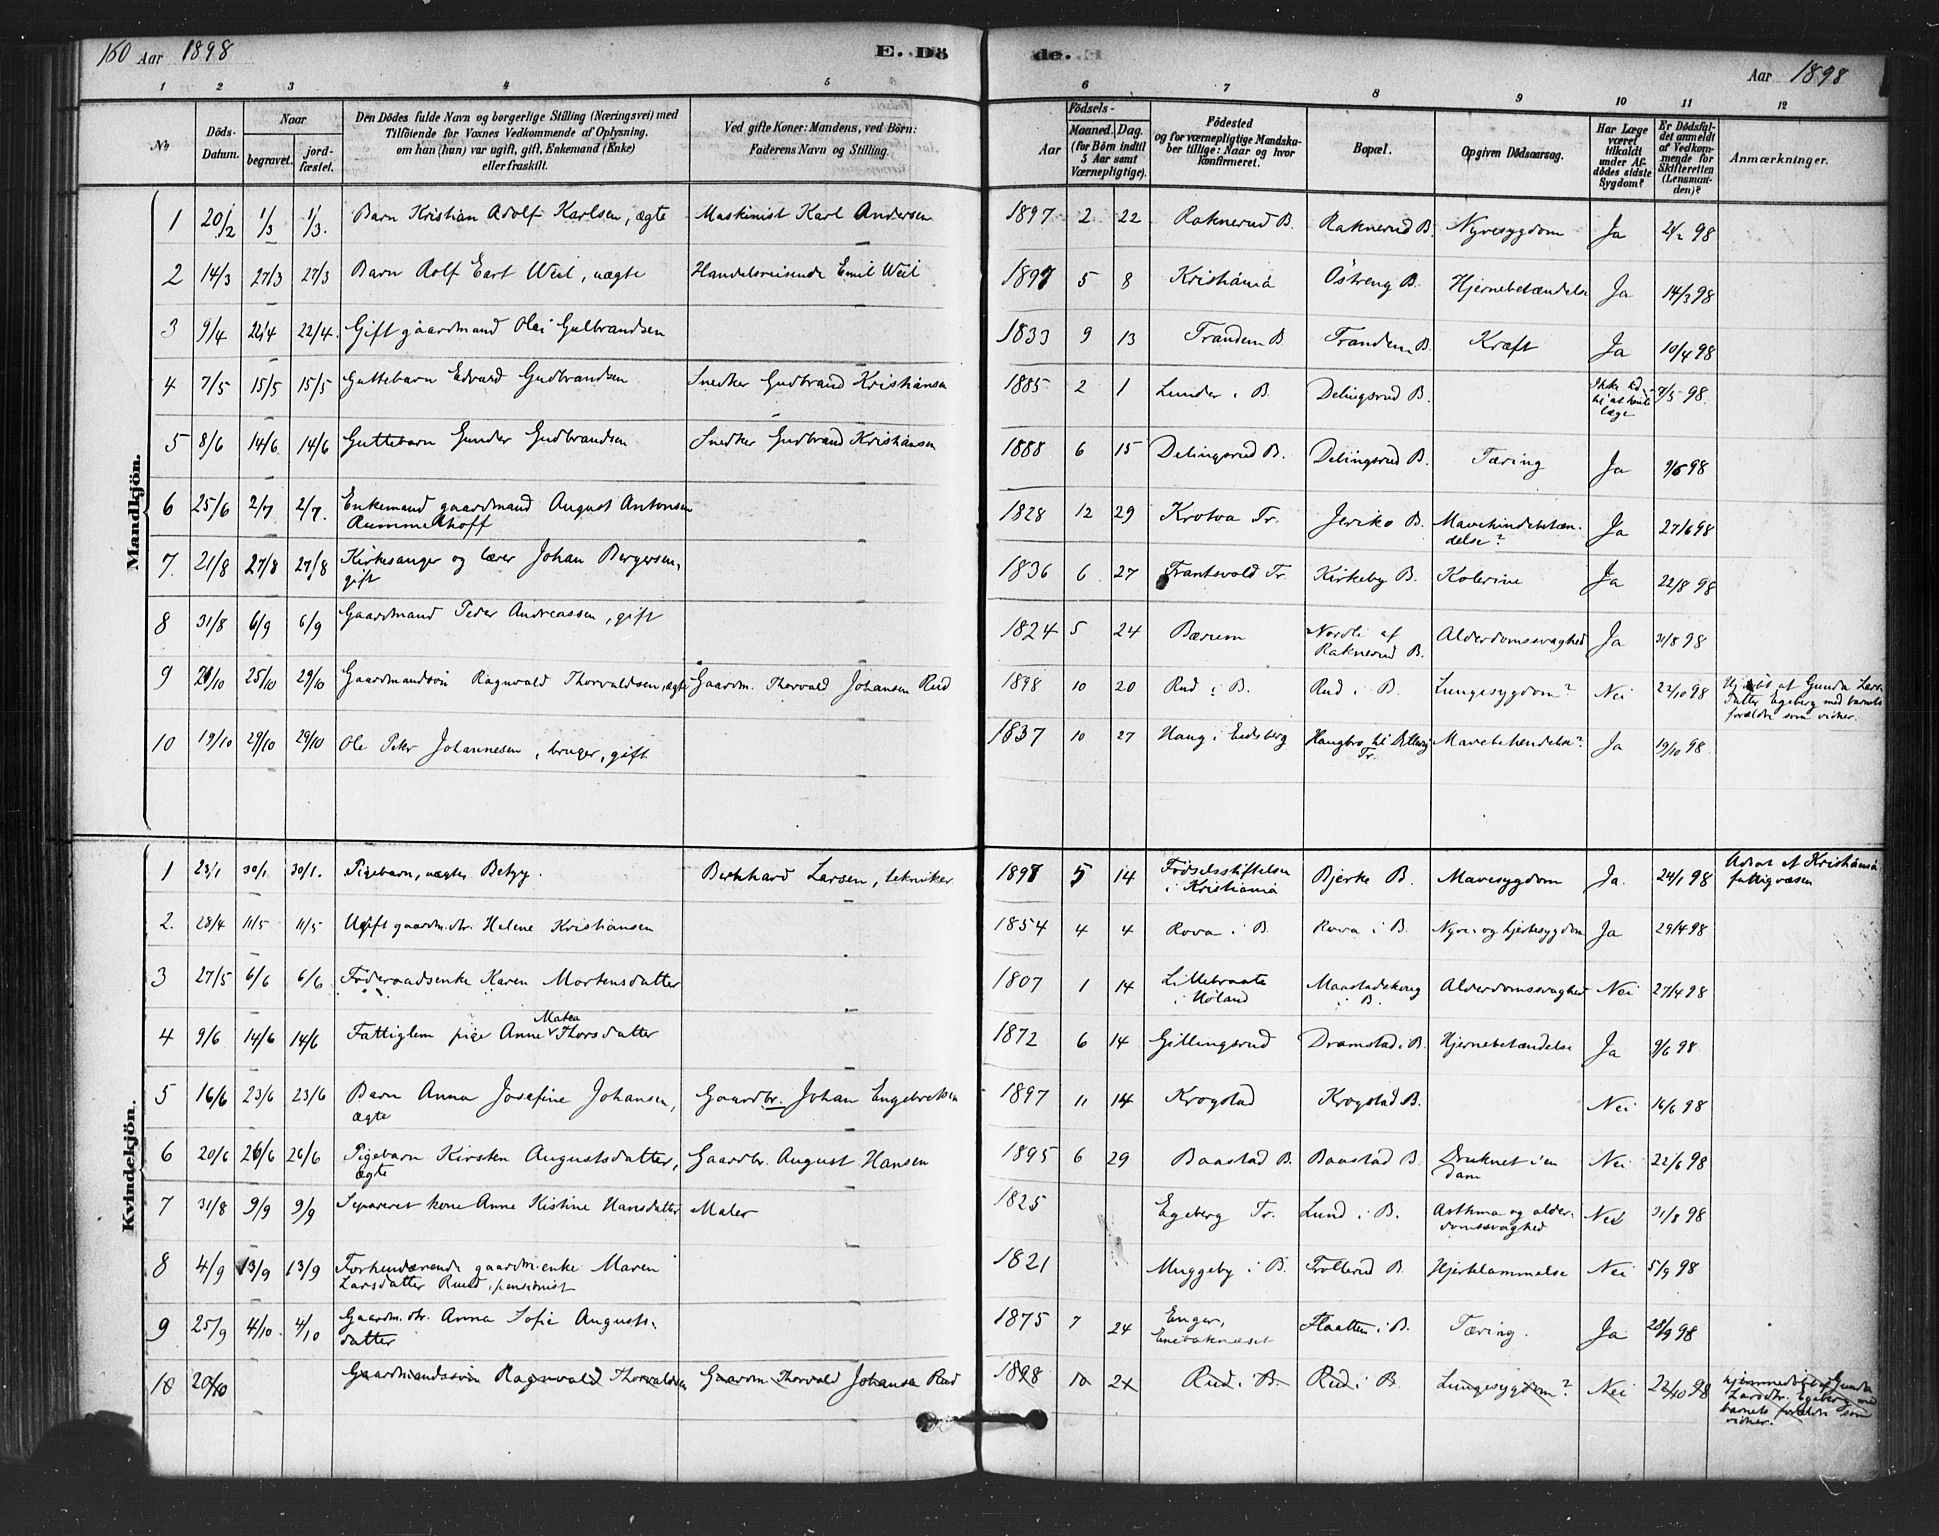 160 Aar 1898 E. Dö de. Aar 1898
1 2 3 4 5 6 7 8 9 10 11 12
No Döds-Datum. Naar begravet. jordfæstet. Den Dödes fulde Navn og borgerlige Stilling (Næringsvei) med Tilföiende for Voxnes Vedkommende af Oplysning, om han (hun) var ugift, gift, Enkemand (Enke) eller fraskilt. Ved gifte Koner: Mandens, ved Börn: Faderens Navn og Stilling. Födsels- Aar Maaned. Dag. (for Börn indtil 5 Aar samt Værnepligtige). Födested og for værnepligtige Mandskaber tillige: Naar og hvor konfirmeret. Bopæl. Opgiven Dödsaarsag. Har Læge været tilkaldt under Afdödes sidste Sygdom? Er Dödsfaldet anmeldt af Vedkommende for Skifteretten (Lensmanden)? Anmærkninger.
Mandkjön.
1 20/2 1/3 1/3. Barn Kristian Adolf Karlsen, ægte Maskinist Karl Andersen 1897 2 22 Raknerud B. Raknerud B. Nyresygdom Ja 2/2 98
2 14/3 27/3 27/3 Barn Rolf Eart Weil, uægte Handelsreisende Emil Weil 1897 5 8 Kristiania Östreng B. Hjernebetændelse Ja 14/3 98
3 9/4 22/4 22/4. Gift gaardmand Olai Gulbrandsen 1833 9 13 Trandem B Trandem B. Kræft Ja 10/4 98
4 7/5 15/5 15/5 Guttebarn Edvard Gudbrandsen Snedker Gudbrand Kristiansen 1885 2 1 Lunder i B. Delingsrud B. Ikke tid til at hente læge 7/5 98.
5 8/6 14/6 14/6 Guttebarn Gunder Gudbrandsen Snedker Gudbrand Kristiansen 1888 6 15 Delingsrud B. Delingsrud B. Tæring Ja 9/6 98
6 25/6 2/7 2/7. Enkemand gaardmand August Antonsen Rummelhoff 1828 12 29 Krotva Tr. Jeriko B. Mavehindebetændelse? Ja 27/6 98
7. 21/8 27/8 27/8 Kirkesanger og lærer Johan Bergersen, gift 1836 6 27 Frantsvold Tr. Kirkeby B. Kolerine Ja 22/8 98
8 31/8 6/9 6/9 Gaardmand Peder Andreassen, gift 1824 5 24 Bærum Nordli af Raknerud B. Alderdomssvaghed Ja 31/8 98
9 21/10 25/10 29/10 Gaardmandssön Ragnvald Thorvaldsen, ægte Gaardm. Thorvald Johansen Rud 1898 10 20 Rud i B. Rud i B. Lungesygdom? Nei 22/10 98 Hj.döbt af Gunda Larsdatter Egeberg med barnets forældre som vidner.
10 19/10 29/10 29/10 Ole Peter Johannesen, bruger, gift 1837 10 27 Haug i Eidsberg Haugbro Tr. Mavebetændelse? Ja 19/10 98.
Kvindekjön.
1 23/1 30/1 30/1. Pigebarn, uægte Betzy. Bernhard Larsen, tekniker 1897 5 14 Födselsstiftelsen i Kristiania Bjerke B. Mavesygdom Ja. 24/1 98 Adsat af Kristiania fattigvæsen
2. 28/4 11/5 11/5 Ugift gaardm.dtr. Helene Kristiansen 1854 4 4 Rova i B. Rova i B. Nyre- og hjertesygdom Ja 29/4 98
3 27/5 6/6 6/6 Föderaadsenke Karen Mortensdatter 1807 1 14 Lillebraate i Höland Maastadskoug i B. Alderdomssvaghed Nei 27/4 98
4 9/6 14/6 14/6 Fattiglem pige Anne Matea Thorsdatter 1872 6 14 Gillingsrud Dramstad i B. Hjernebetændelse Ja 9/6 98
5 16/6 23/6 23/6 Barn Anna Josefine Johansen, ægte Gaardbr. Johan Engebretsen 1897 11 14 Krogstad Krogstad B. Nei 16/6 98
6 20/6 26/6 26/6 Pigebarn Kirsten Augustsdatter, ægte Gaardbr. August Hansen 1895 6 29 Baastad B. Baastad B. Druknet i en dam Nei 22/6 98
7 31/8 9/9 9/9 Separeret kone Anne Kistine Hansdatter Maler 1825 Egeberg Tr. Lund i B. Asthma og alderdomssvaghed Nei 31/8 98
8 4/9 13/9 13/9 Forhenværende gaardm.enke Maren Larsdatter Ruud, pensionist 1821 Muggeby i B. Trollerud B. Hjertelammelse Nei 5/9 98
9 25/9 4/10. 4/10 Gaardm.dtr. Anna Sofie Augustsdatter 1875 7 24 Enger, Enebaknæset Flaatten i B. Tæring. Ja 28/9 98
10 20/10 Gaardmandssön Ragnvald Thorvaldsen Gaardm Thorvald Johansen Rud 1898 10 21 Rud i B. Rud i B Lungesygdom? Nei 22/10 98 hjemmedöbt af Gunda Larsdtr. Egeberg med barnets forældre som vidner.